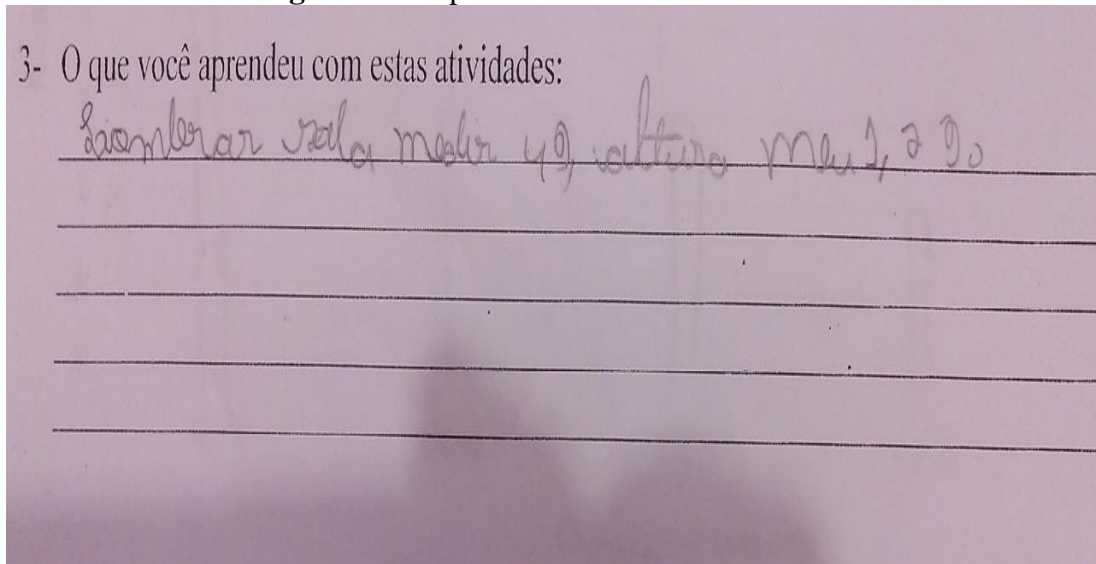 3- O que você aprendeu com estas atividades:
sala medir 49, altura meu 1,